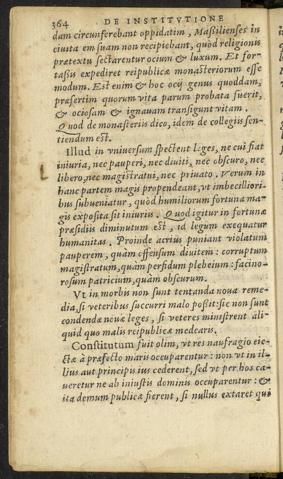 364 DE INSTITVTIONE
dam circunferebant oppidatim, Maßilienses in
ciuita em suam non recipiebant, quòd religionis
prætextu sectarentur ocium & luxum. Et for-
taßis expediret reipublicæ monasteriorum esse
modum. Est enim & hoc ocij genus quoddam,
præsertim quorum vita parum probata fuerit,
& ociosam & ignauam transigunt vitam.
Quod de monasterijs dico, idem de collegijs sen-
tiendum est.
Illud in vniuersum spectent leges, ne cui fiat
iniuria, nec pauperi, nec diuiti, nec obscuro, nec
libero, nec magistratui, nec priuato. Verum in
hanc partem magis propendeant, vt imbecilliori-
bus subueniatur, quòd humiliorum fortuna ma-
gis exposita sit iniurijs. Quod igitur in fortunæ
præsidijs diminutum est, id legum exequatur
humanitas. Proinde acrius puniant violatum
pauperem, quàm offensum diuitem: corruptum
magistratum, quàm perfidum plebeium: facino-
rosum patricium, quàm obscurum.
Vt in morbis non sunt tentanda noua reme-
dia, si veteribus succurri malo poßit: sic non sunt
condendæ nouæ leges, si veteres ministrent ali-
quid quo malis reipublicæ medearis.
Constitutum fuit olim, vt res naufragio eie-
ctæ à præfecto maris occuparentur: non vt in il-
lius aut principis ius cederent, sed vt per hos ca-
ueretur ne ab iniustis dominis occuparentur: &
ita demum publicæ fierent, si nullus extaret qui